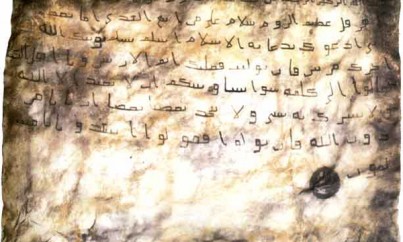 هرقل عظيم الروم سلام على من اتبع الهدى اما بعد
ادعوك بدعاية الاسلام اسلم تسلم يوتك الله
اجرك مرتين فان توليت فعليك اثم
تعالوا الى كلمة سوا بيننا وبينكم الا نعبد الا الله
ولا نشرك به شيا ولا يتخذ بعضنا بعضا اربابا من
دون الله فان تولوا فقولوا اشهدوا بانا مس
لمون